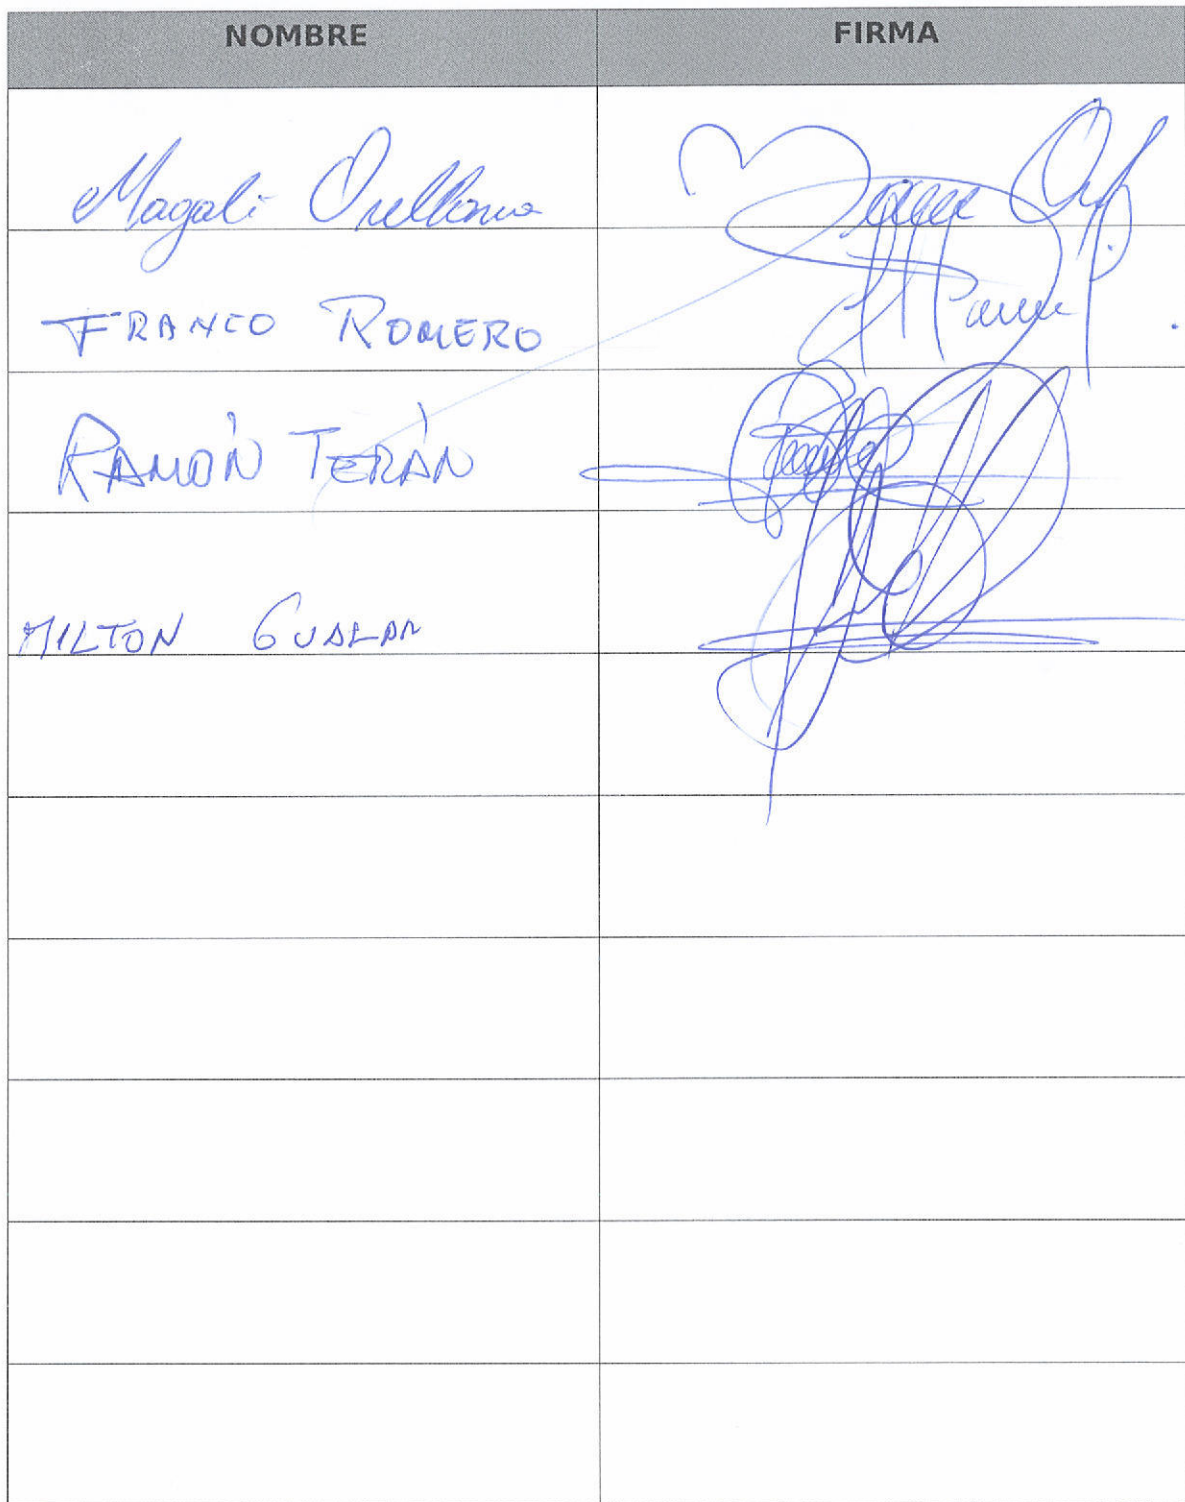 NOMBRE FIRMA
Magali Orellana
FRANCO ROMERO
RAMÓN TERÁN
MILTON GUALAN